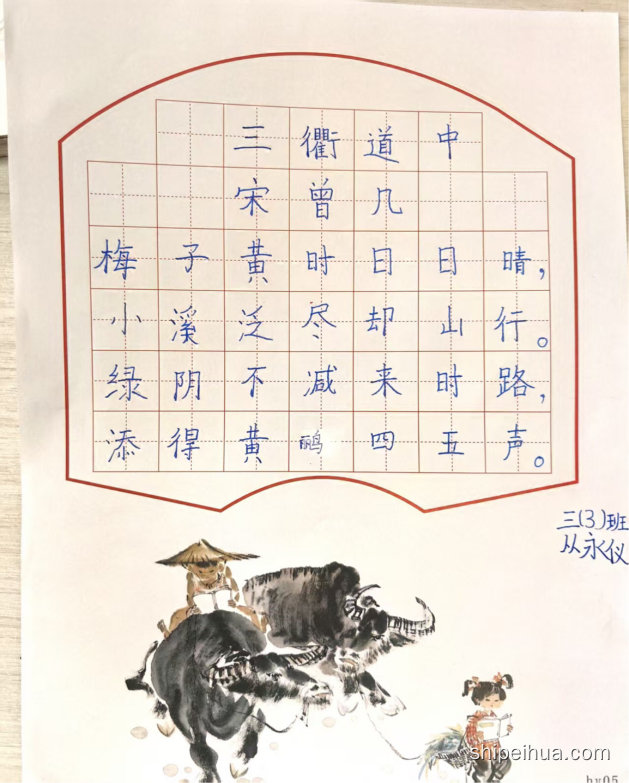 三衢道中
宋曾几
梅子黄时日日晴，
小溪泛尽却山行。
绿阴不减来时路，
添得黄鹂四五声。
三(3)班
从永仪
shipeihua.com
hy05